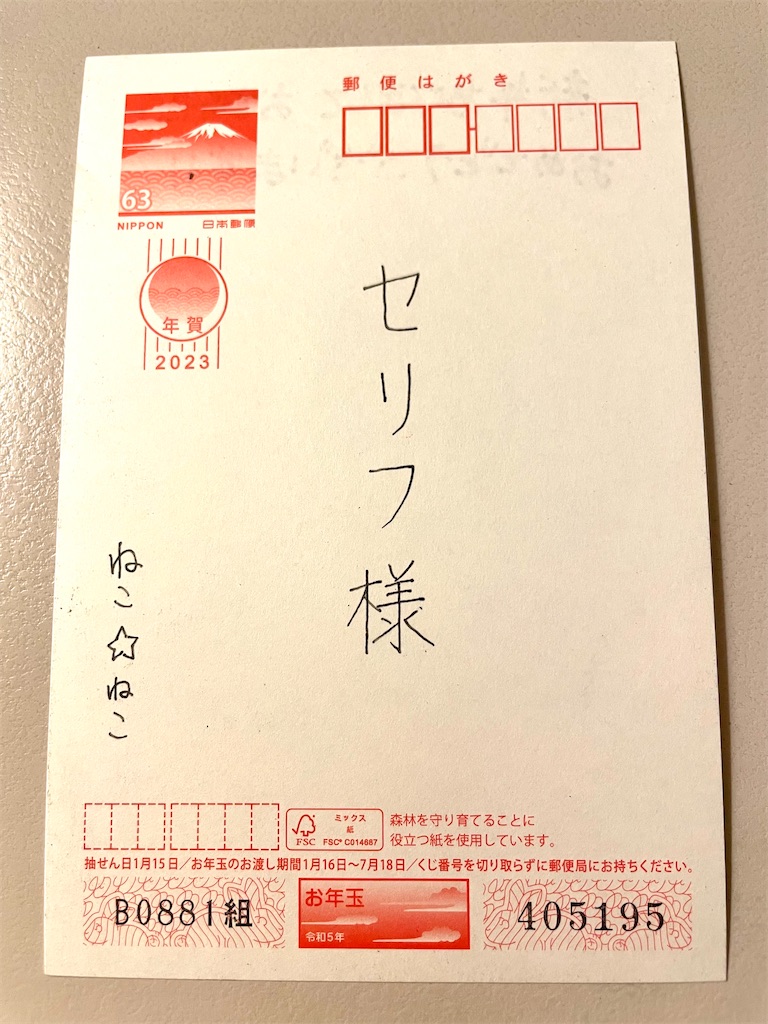 郵便はがき
63
NIPPON 日本郵便
年賀
2023
セリフ様
ねこ☆ねこ
ミックス
紙
FSC
FSC® C014687
森林を守り育てることに
役立つ紙を使用しています。
抽せん日1月15日/お年玉のお渡し期間1月16日~7月18日/くじ番号を切り取らずに郵便局にお持ちください。
B0881組
お年玉
令和5年
405195